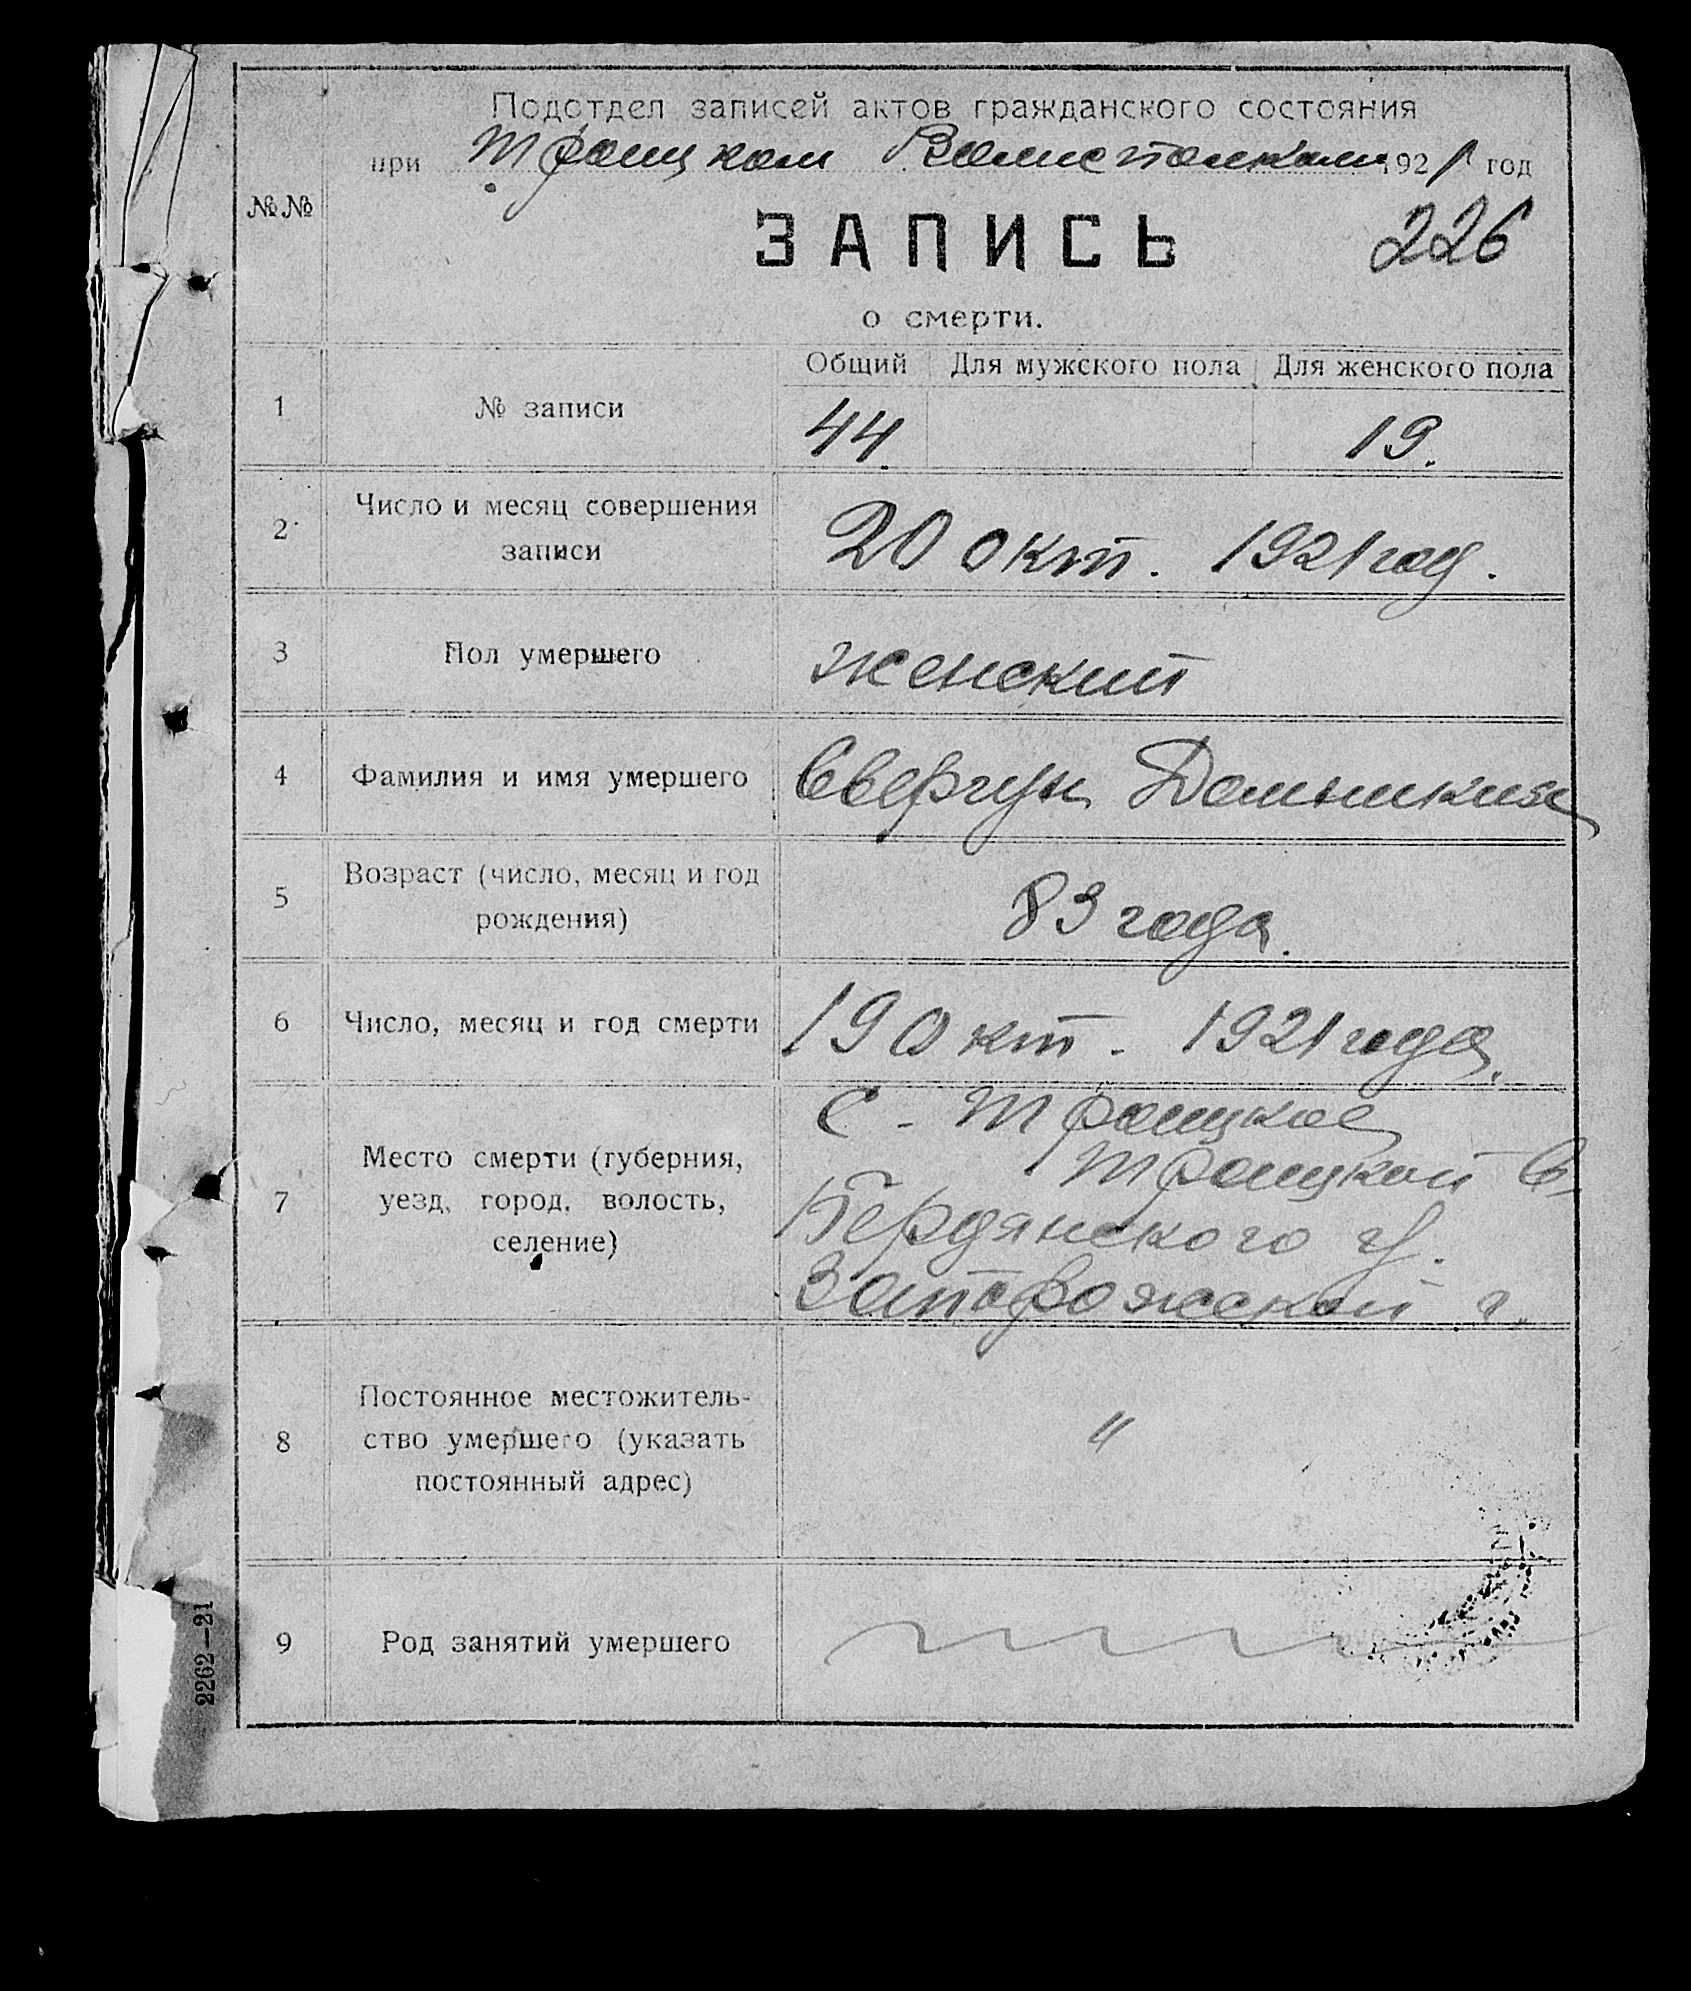 Подотдел записей актов гражданского состояния
при Троицком Волисполкоме 1921 год
№№
ЗАПИСЬ
226
о смерти.
Общий Для мужского пола Для женского пола
1 № записи 44. 19.
2 Число и месяц совершения
записи
20 окт. 1921 год.
3 Пол умершего женский
4 Фамилия и имя умершего Свергун
5 Возраст (число, месяц и год
рождения)
83 года.
6 Число, месяц и год смерти 19 окт. 1921 года.
7 Место смерти (губерния,
уезд, город, волость,
селение)
с. Троицкое
Троицкой в.
Бердянского у.
Запорожской г.
8 Постоянное местожитель-
ство умершего (указать
постоянный адрес)
"
9 Род занятий умершего
2262—21